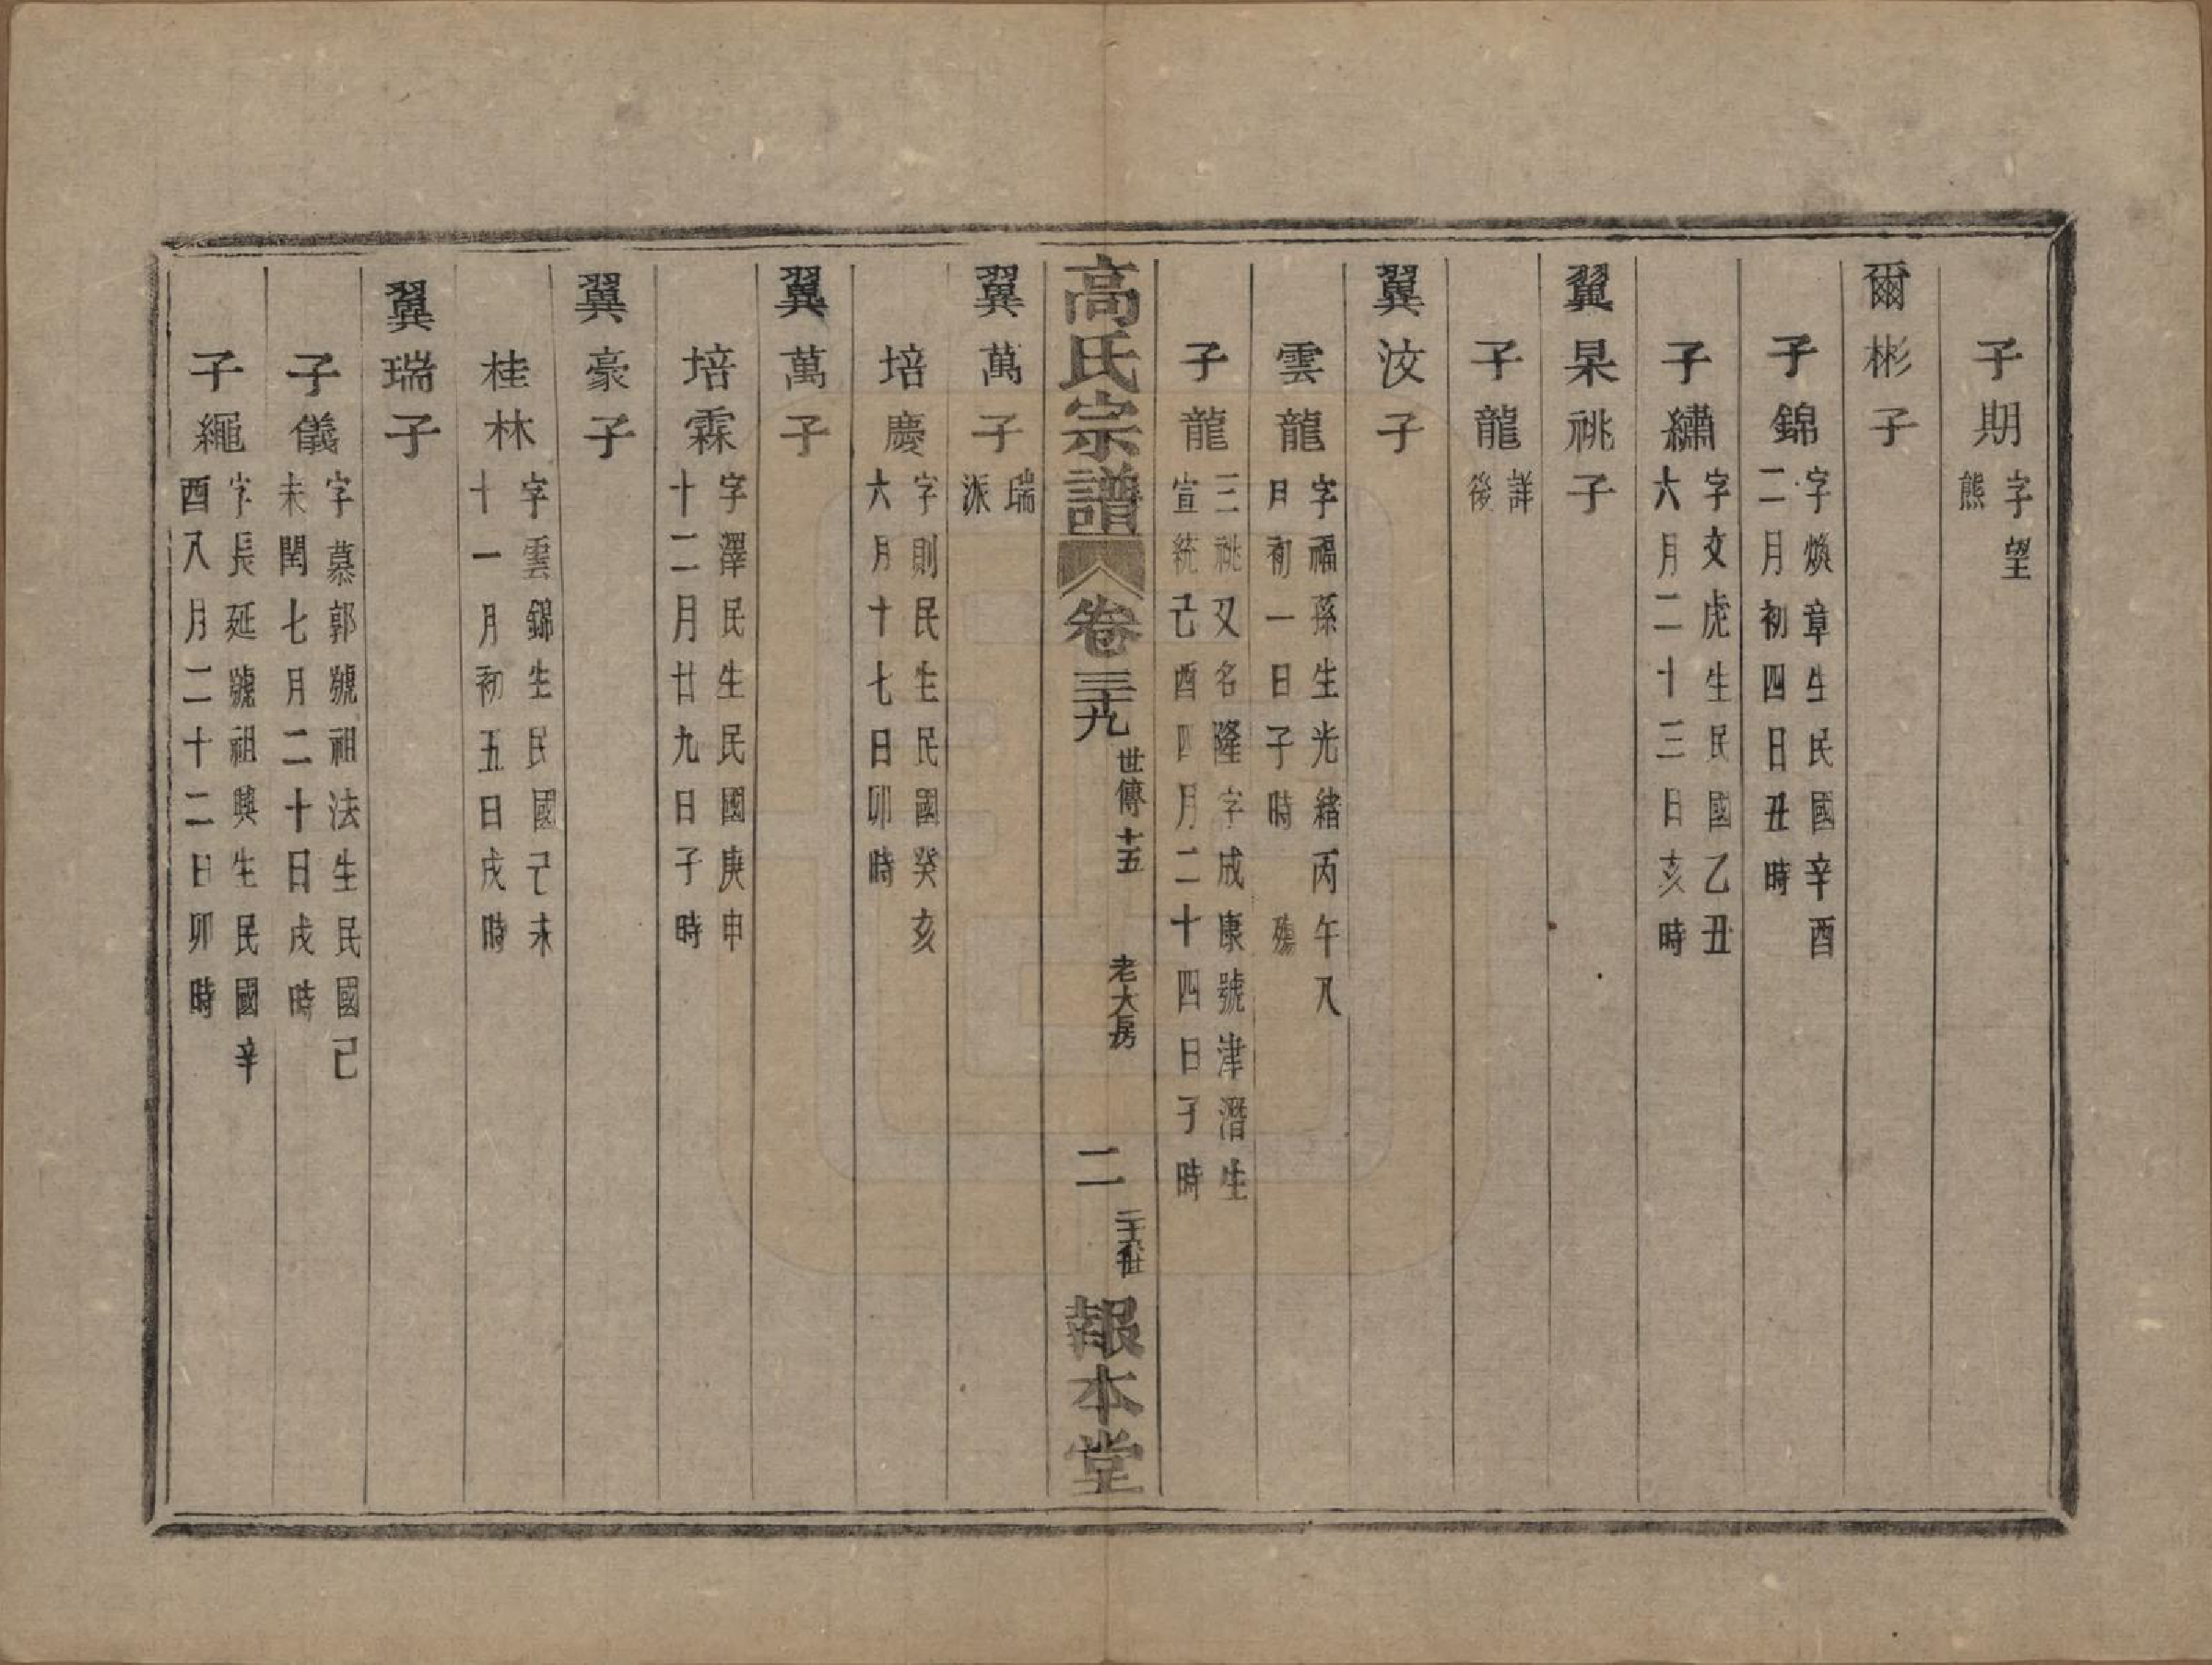 子期字望
熊
爾彬子
子錦字煥章生民國辛酉
二月初四日丑時
子繡字文虎生民國乙丑
六月二十三日亥時
翼杲祧子
子龍詳
後
翼汶子
雲龍字福孫生光緒丙午八
月初一日子時 殤
子龍三祧又名隆字成康號津潛生
宣統己酉四月二十四日子時
高氏宗譜 卷三十九 世傳十五 老大房 二 二十六世 報本堂
翼萬子瑞
派
培慶字則民生民國癸亥
六月十七日卯時
翼萬子
培霖字澤民生民國庚申
十二月廿九日子時
翼豪子
桂林字雲錦生民國己未
十一月初五日戌時
翼瑞子
子儀字慕郭號祖法生民國己
未閏七月二十日戌時
子繩字長延號祖興生民國辛
酉八月二十二日卯時